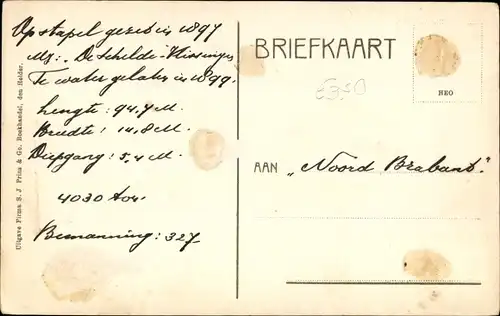 Op stapel gezet in 1897
Mij: "De Schelde - Vlissingen
Te water gelaten in 1899.
Lengte: 94.7 M.
Breedte: 14.8 M.
Diepgang: 5.4 M.
4030 ton
Bemanning: 327
Uitgave Firma S. J. Prins & Co. Boekhandel, den Helder.
BRIEFKAART
NEO
AAN "Noord Brabant".